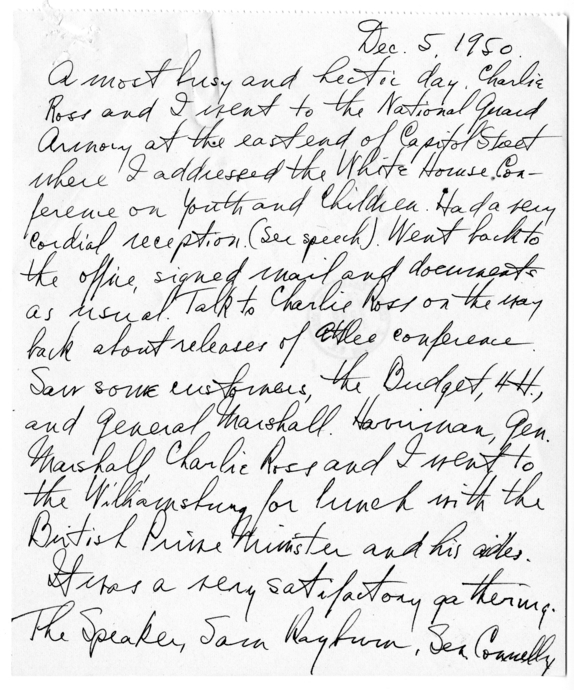 Dec. 5, 1950.
A most busy and hectic day. Charlie
Ross and I went to the National Guard
Armory at the east end of Capitol Street
where I addressed the White House Con-
ference on Youth and Children. Had a very
cordial reception. (See speech). Went back to
the office, signed mail and documents
as usual. Talk to Charlie Ross on the way
back about releases of Attlee conference.
Saw some customers, the Budget, H.H.,
and General Marshall. Harriman, Gen.
Marshall, Charlie Ross and I went to
the Williamsburg for lunch with the
British Prime Minister and his aides.
It was a very satisfactory gathering.
The Speaker, Sam Rayburn, Sen. Connelly